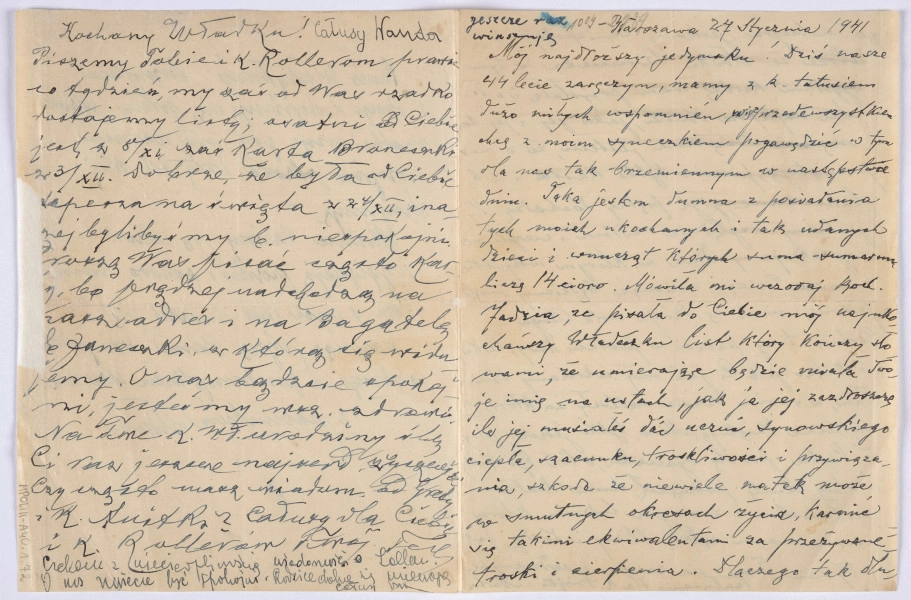 Kochany Władku! Całusy Wanda
Piszemy Tobie i K. Rollerom prawie
co tydzień, my zaś od Was rzadko
dostajemy listy; ostatni od Ciebie
jest z 5/XI zaś karta Broneczki
z 3/XII. dobrze, że była od Ciebie
depesza na święta z 24/XII, ina-
czej bylibyśmy b. niespokojni.
Proszę Was pisać często kar-
ty, bo prędzej nadchodzą na
nasz adres i na Bagatelę
do Janeczki, z którą się widu-
jemy. O nas bądźcie spokoj-
ni, jesteśmy wsz. zdrowi
Na Twe K. Wł. urodziny ślę
Ci raz jeszcze najserd. życzenia
Czy często masz wiadom. od
i K. Całuję dla Ciebie
i K. Rollerów Twój
Ciekawie z wiadomości o
O nas możecie być spokojni.
jeszcze raz
winszuję
Warszawa 27 Stycznia 1941
Mój najdroższy jedynaku! Dziś nasze
44 lecie zaręczyn, mamy z k. tatusiem
dużo miłych wspomnień, przedewszystkiem
chcę z moim syneczkiem pogawędzić w tym
dla nas tak brzemiennym w następstwa
dniu. Taka jestem dumna z posiadania
tych moich ukochanych i tak udanych
dzieci i wnucząt których suma-sumarum
liczą 14cioro. Mówiła mi wczoraj koch.
Jadzia, że pisała do Ciebie mój najuko-
chańszy Władeczku list który kończy sło-
wami, że umierając będzie miała Two-
je imię na ustach, jak ja jej zazdroszczę
ile jej musiałeś dać uczuć, synowskiego
ciepła, szacunku, troskliwości i przywiąza-
nia, szkoda że niewiele matek może
w smutnych okresach życia, karmić
się takimi ekwiwalentami za przeżywane
troski i cierpienia. Dlaczego tak dłu-